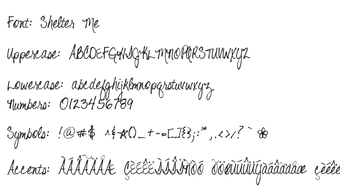 Font: Shelter Me
Uppercase: ABCDEFGHIJGKLMNOPQRSTUVWXYZ
Lowercase: abcdefghijklmnopqrstuvwxyz
Numbers: 0123456789
Symbols: !@#$ ^&*()_+-=[]{};:",.<>/?`
Accents: ÀÁÂÃÄÅÆ ÇÈÉÊË